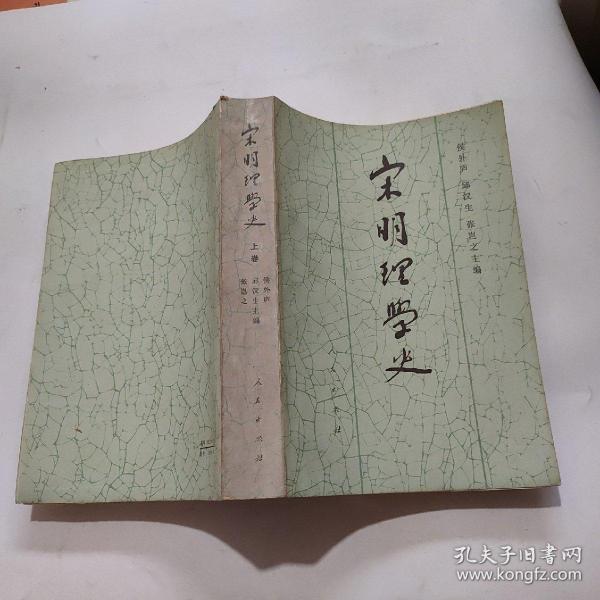 宋明理學史
侯外庐 邱汉生 张岂之主编
出版社
宋明理學史
上卷
侯外庐
邱汉生主编
张岂之
人民出版社
孔夫子旧书网
www.kongfz.com